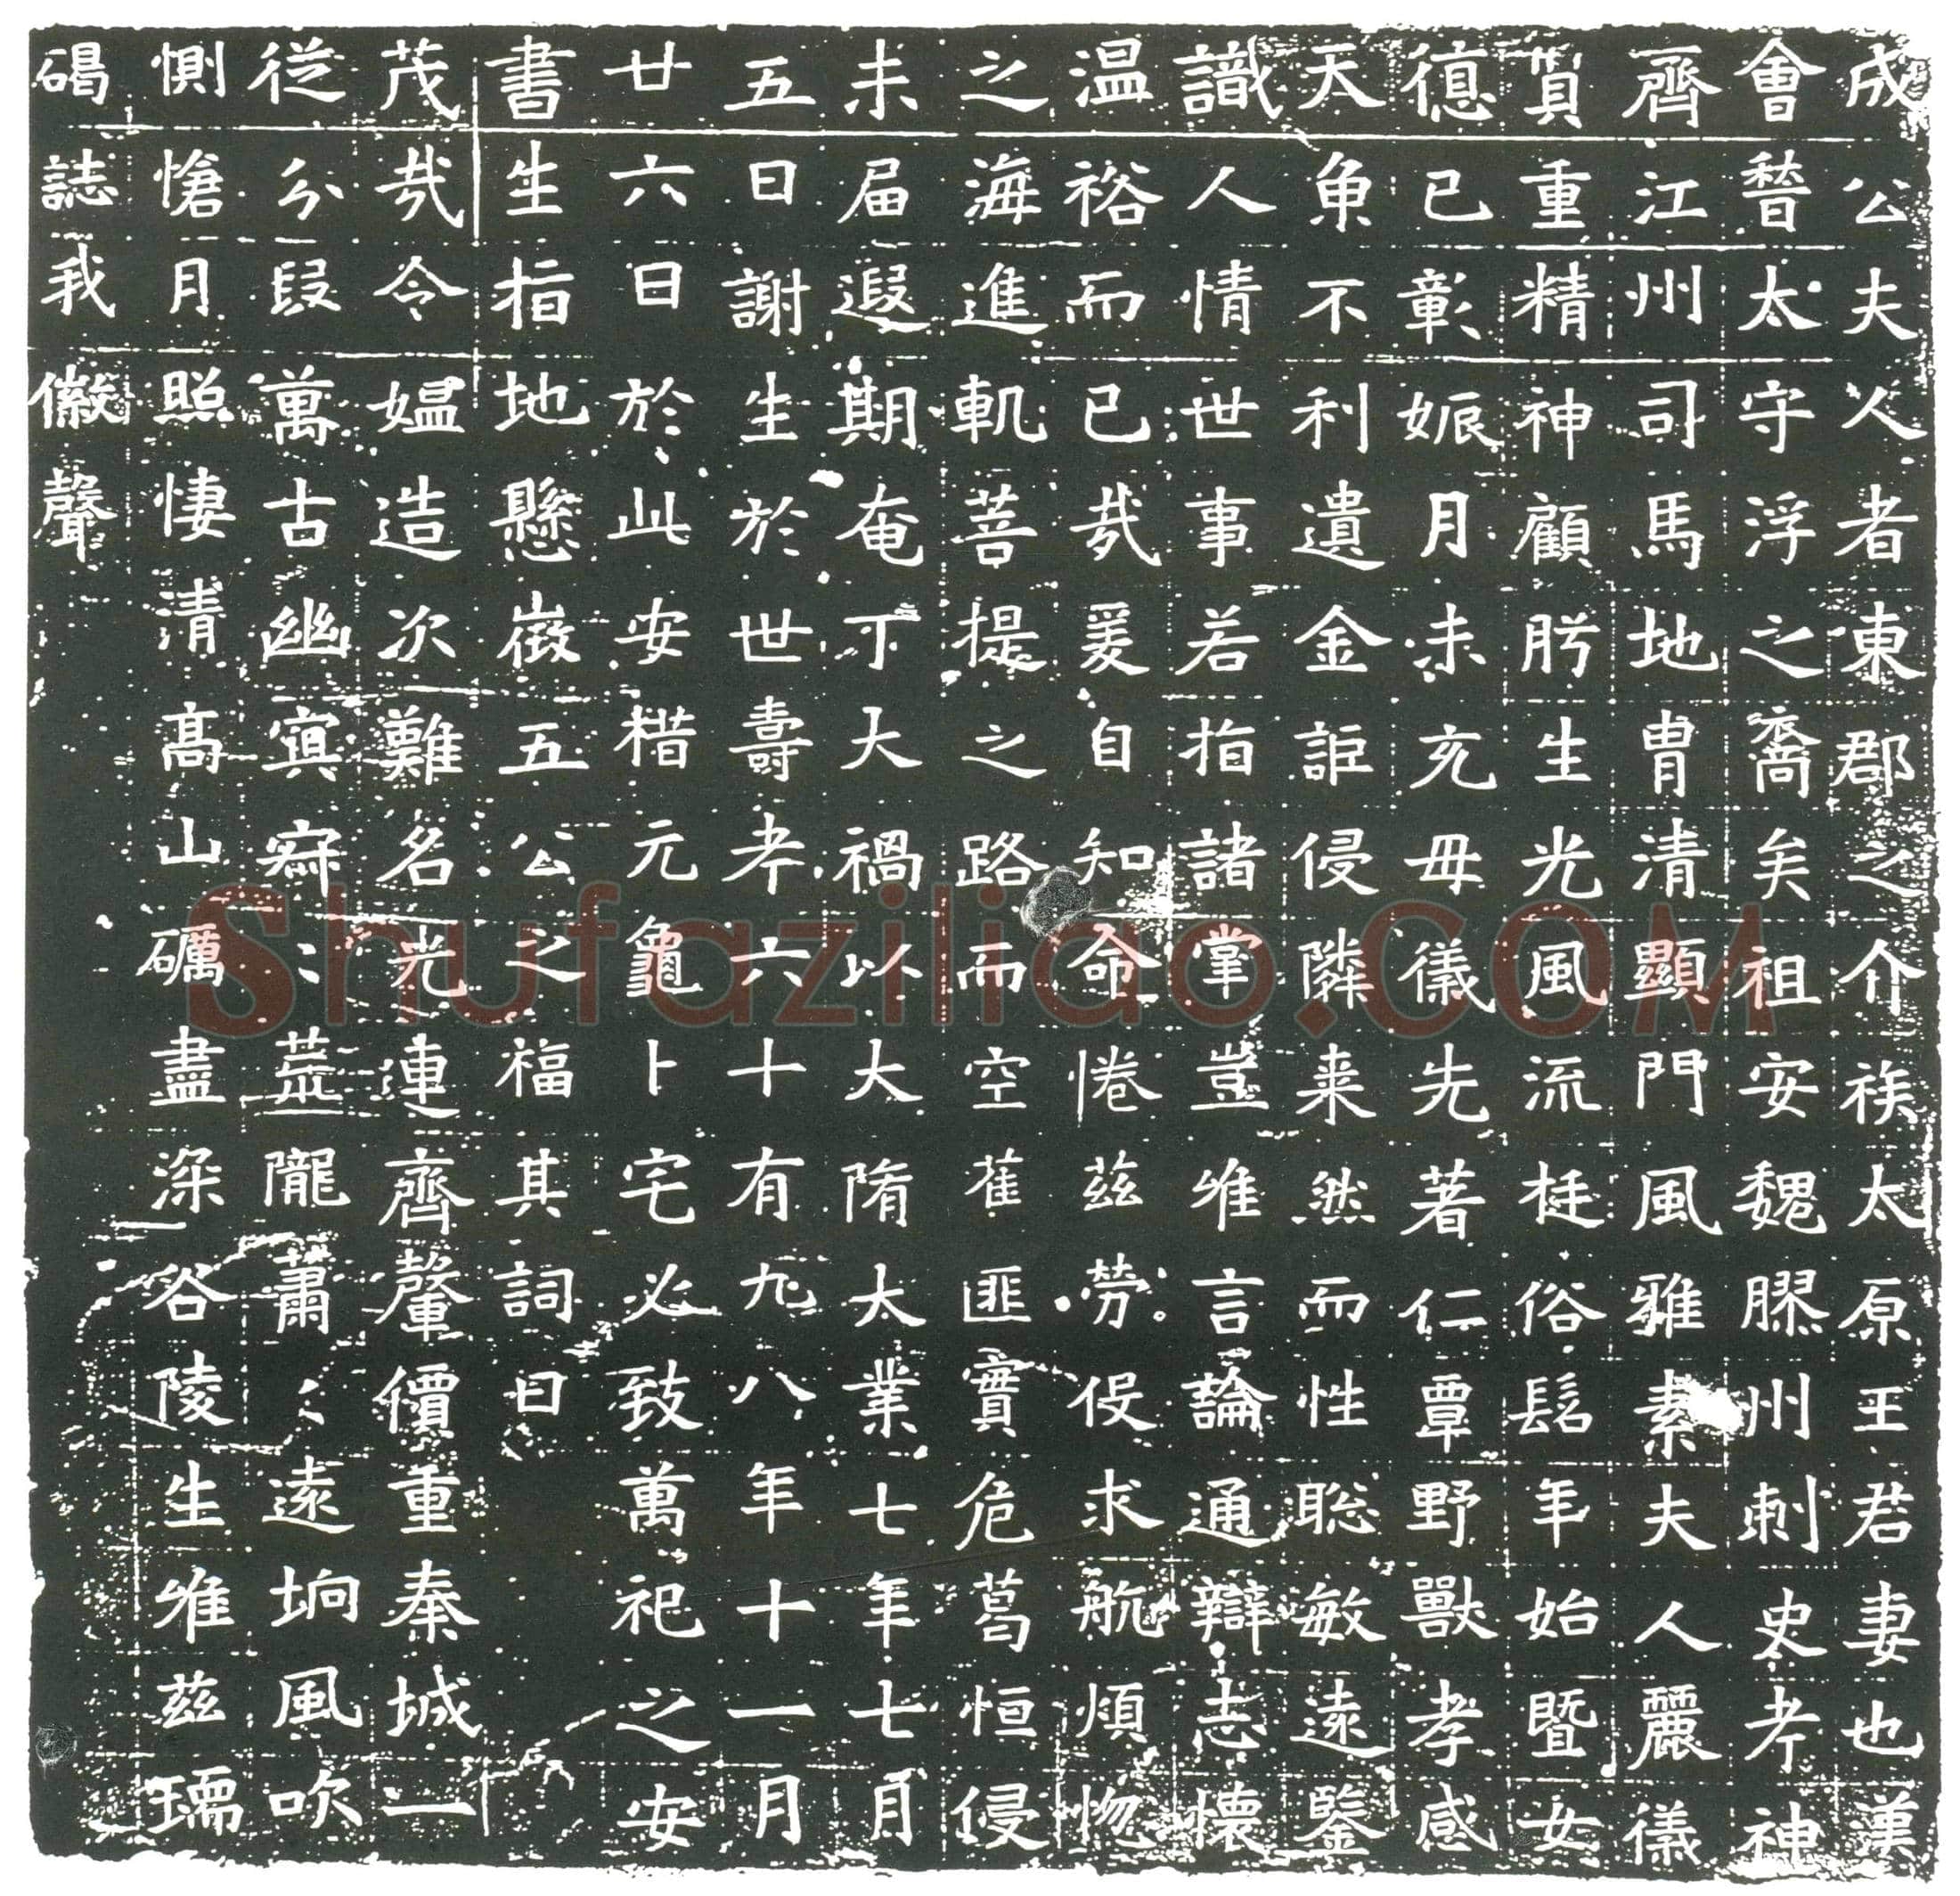 成公夫人者東郡之介族太原王君妻也漢
會稽太守浮之裔矣祖安魏膠州刺史考神
齊江州司馬地胄清顯門風雅素夫人麗儀
質重精神顧眄生光風流挺俗髫年始暨女
德已彰娠月未充母儀先著仁覃野獸孝感
天魚不利遺金詎侵隣来然而性聡敏遠鑒
識人情世事若指諸掌豈唯言論通辯志懷
温裕而已哉爰自知命惓茲勞侵求航煩惚
之海進軌菩提之路而空雚匪實危葛恒侵
未届遐期奄丁大禍以大隋大業七年七月
五日謝生於世壽考六十有九八年十一月
廿六日於此安措元龜卜宅必致萬祀之安
書生指地懸徵五公之福其詞曰
茂哉令媼造次難名光連齊𨏥價重秦城一
從分段萬古幽冥寂〻荒隴蕭〻遠坰風吹
惻愴月照悽清高山礪盡深谷陵生唯茲瓀
碣誌我徽聲
Shufaziliao.COM